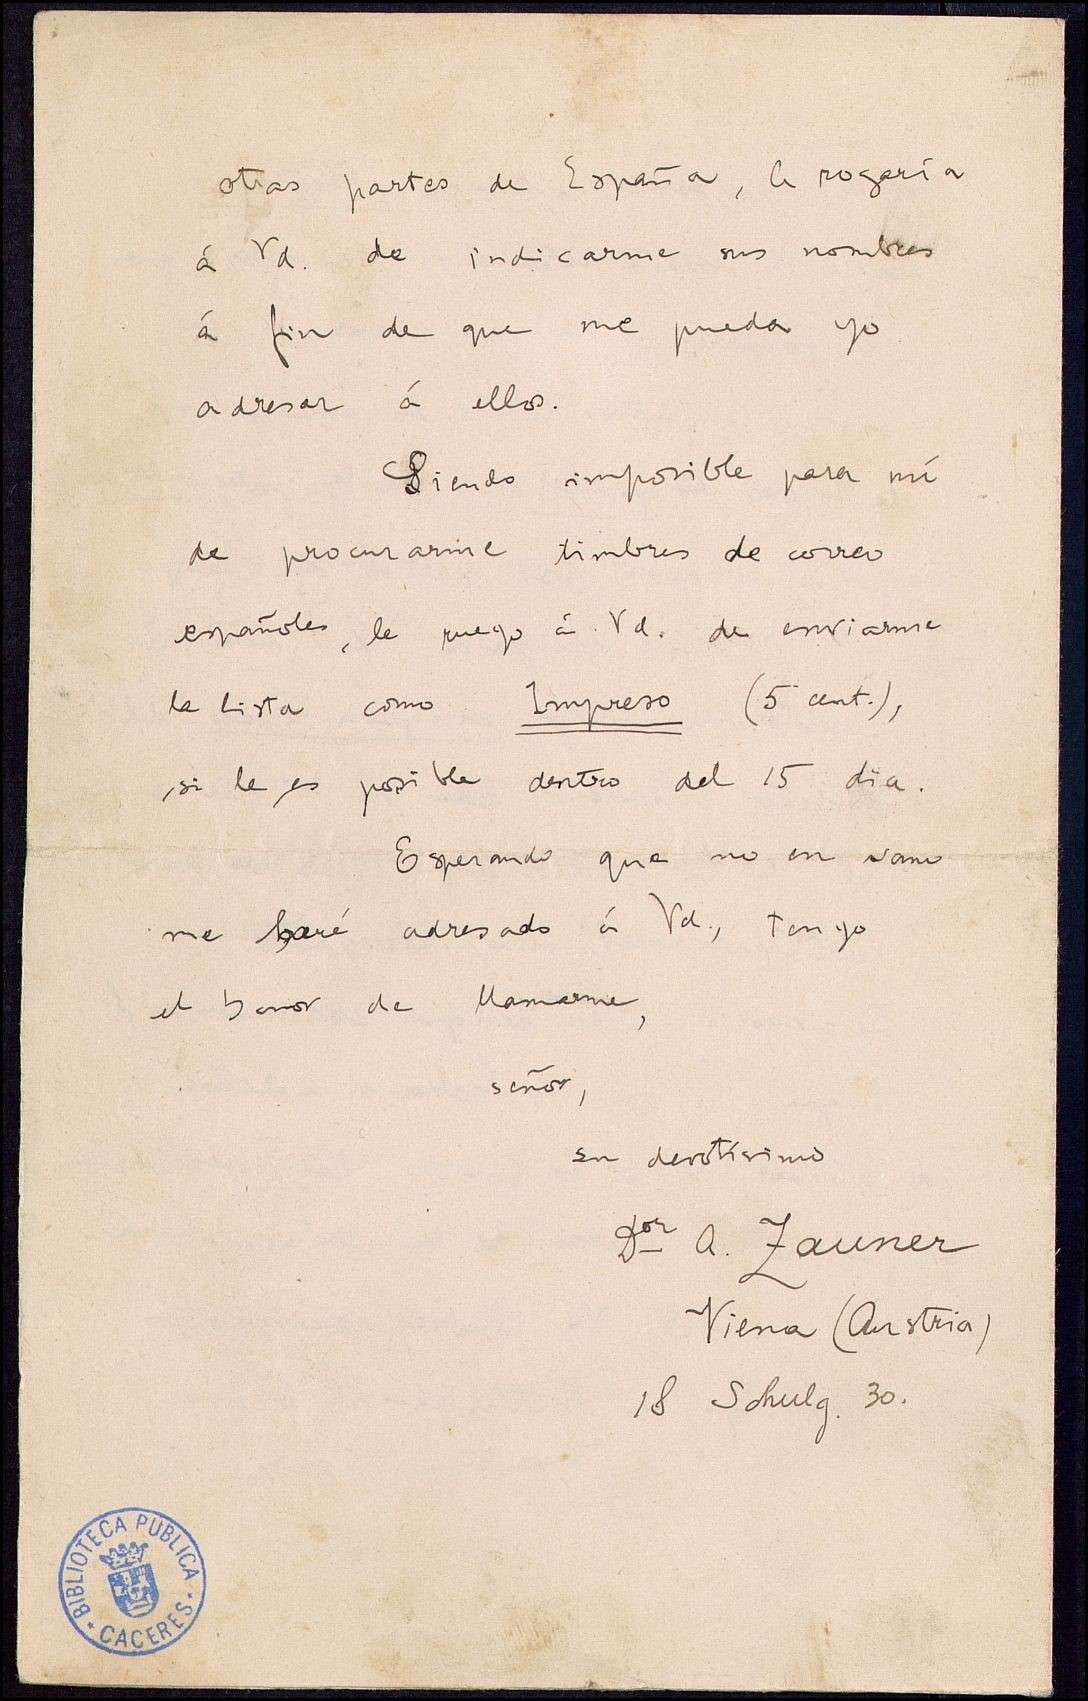 otras partes de España, le rogaría
á Vd. de indicarme sus nombres
á fin de que me pueda yo
adresar á ellos.
Siendo imposible para mí
de procurarme timbres de correo
españoles, le ruego á Vd. de enviarme
la lista como Impreso (5 cent.),
si le es posible dentro del 15 dia.
Esperando que no en vano
me haré adresado á Vd., tengo
el honor de llamarme,
señor,
su devotísimo
Dor A. Zauner
Viena (Austria)
18 Schulg. 30.
BIBLIOTECA PUBLICA
CACERES